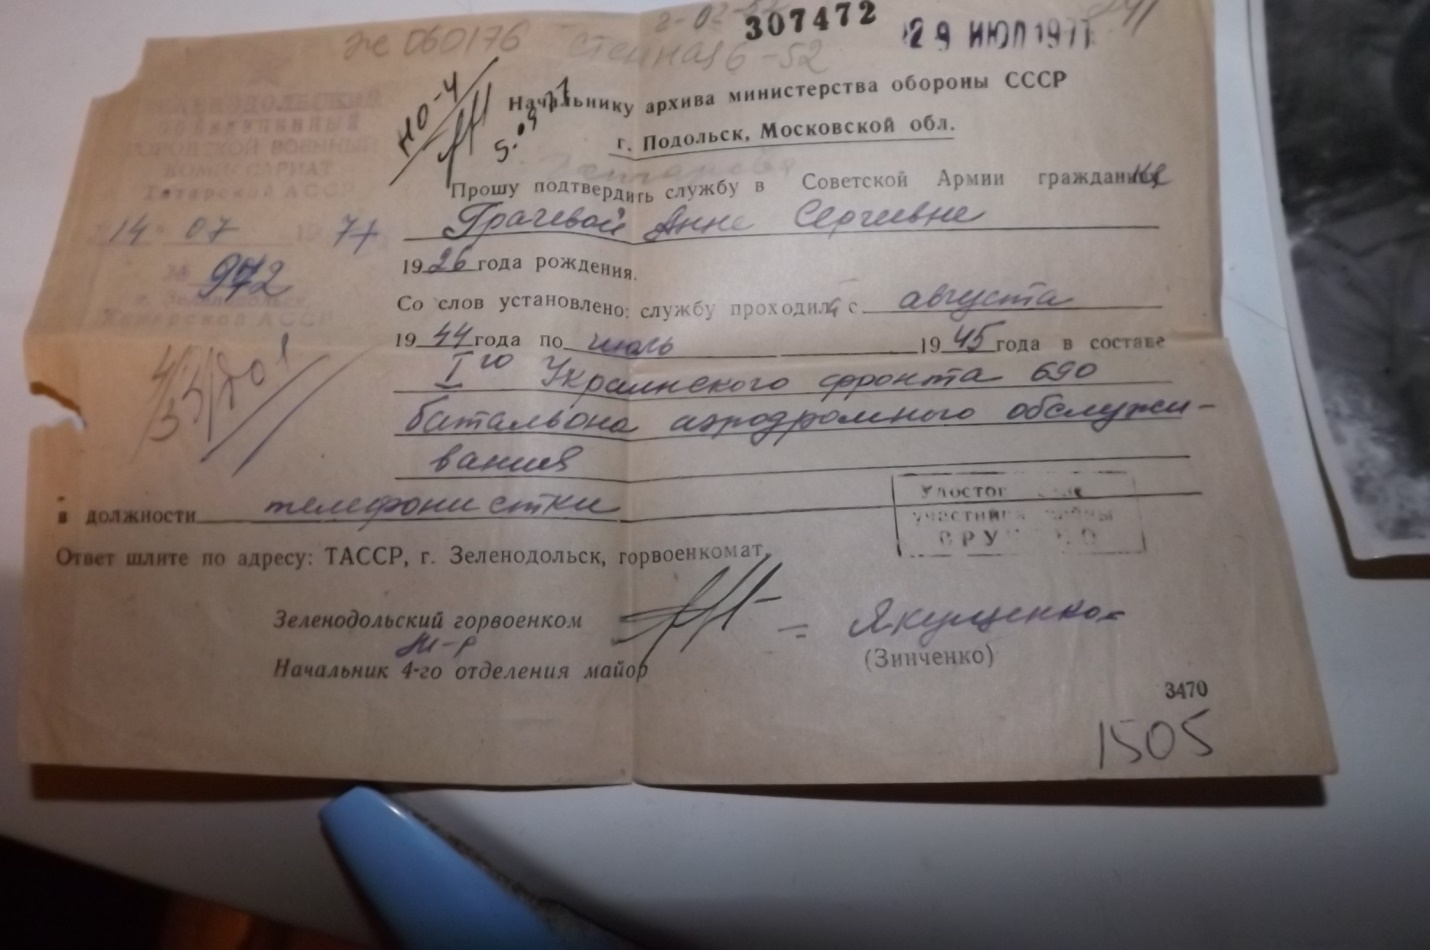 307472
29 ИЮЛ 1977
Же 060176
6-52
НО-4
5.09.77
Начальнику архива министерства обороны СССР
г. Подольск, Московской обл.
ЗЕЛЕНОДОЛЬСКИЙ
ОБЪЕДИНЕННЫЙ
ГОРОДСКОЙ ВОЕННЫЙ
КОМИССАРИАТ
Татарской АССР
14 07 1977
№ 972
г. Зеленодольск
Татарской АССР
Прошу подтвердить службу в Советской Армии гражданке
Грачевой Анне Сергеевне
1926 года рождения.
Со слов установлено: службу проходила с августа
1944 года по июль 1945 года в составе
I го Украинского фронта 690
батальона аэродромного обслужи-
вания
в должности телефонистки
Удостоверение
участника войны
ВРУЧЕНО
Ответ шлите по адресу: ТАССР, г. Зеленодольск, горвоенкомат.
Зеленодольский горвоенком
Начальник 4-го отделения майор
Якущенко
(Зинченко)
3470
1505